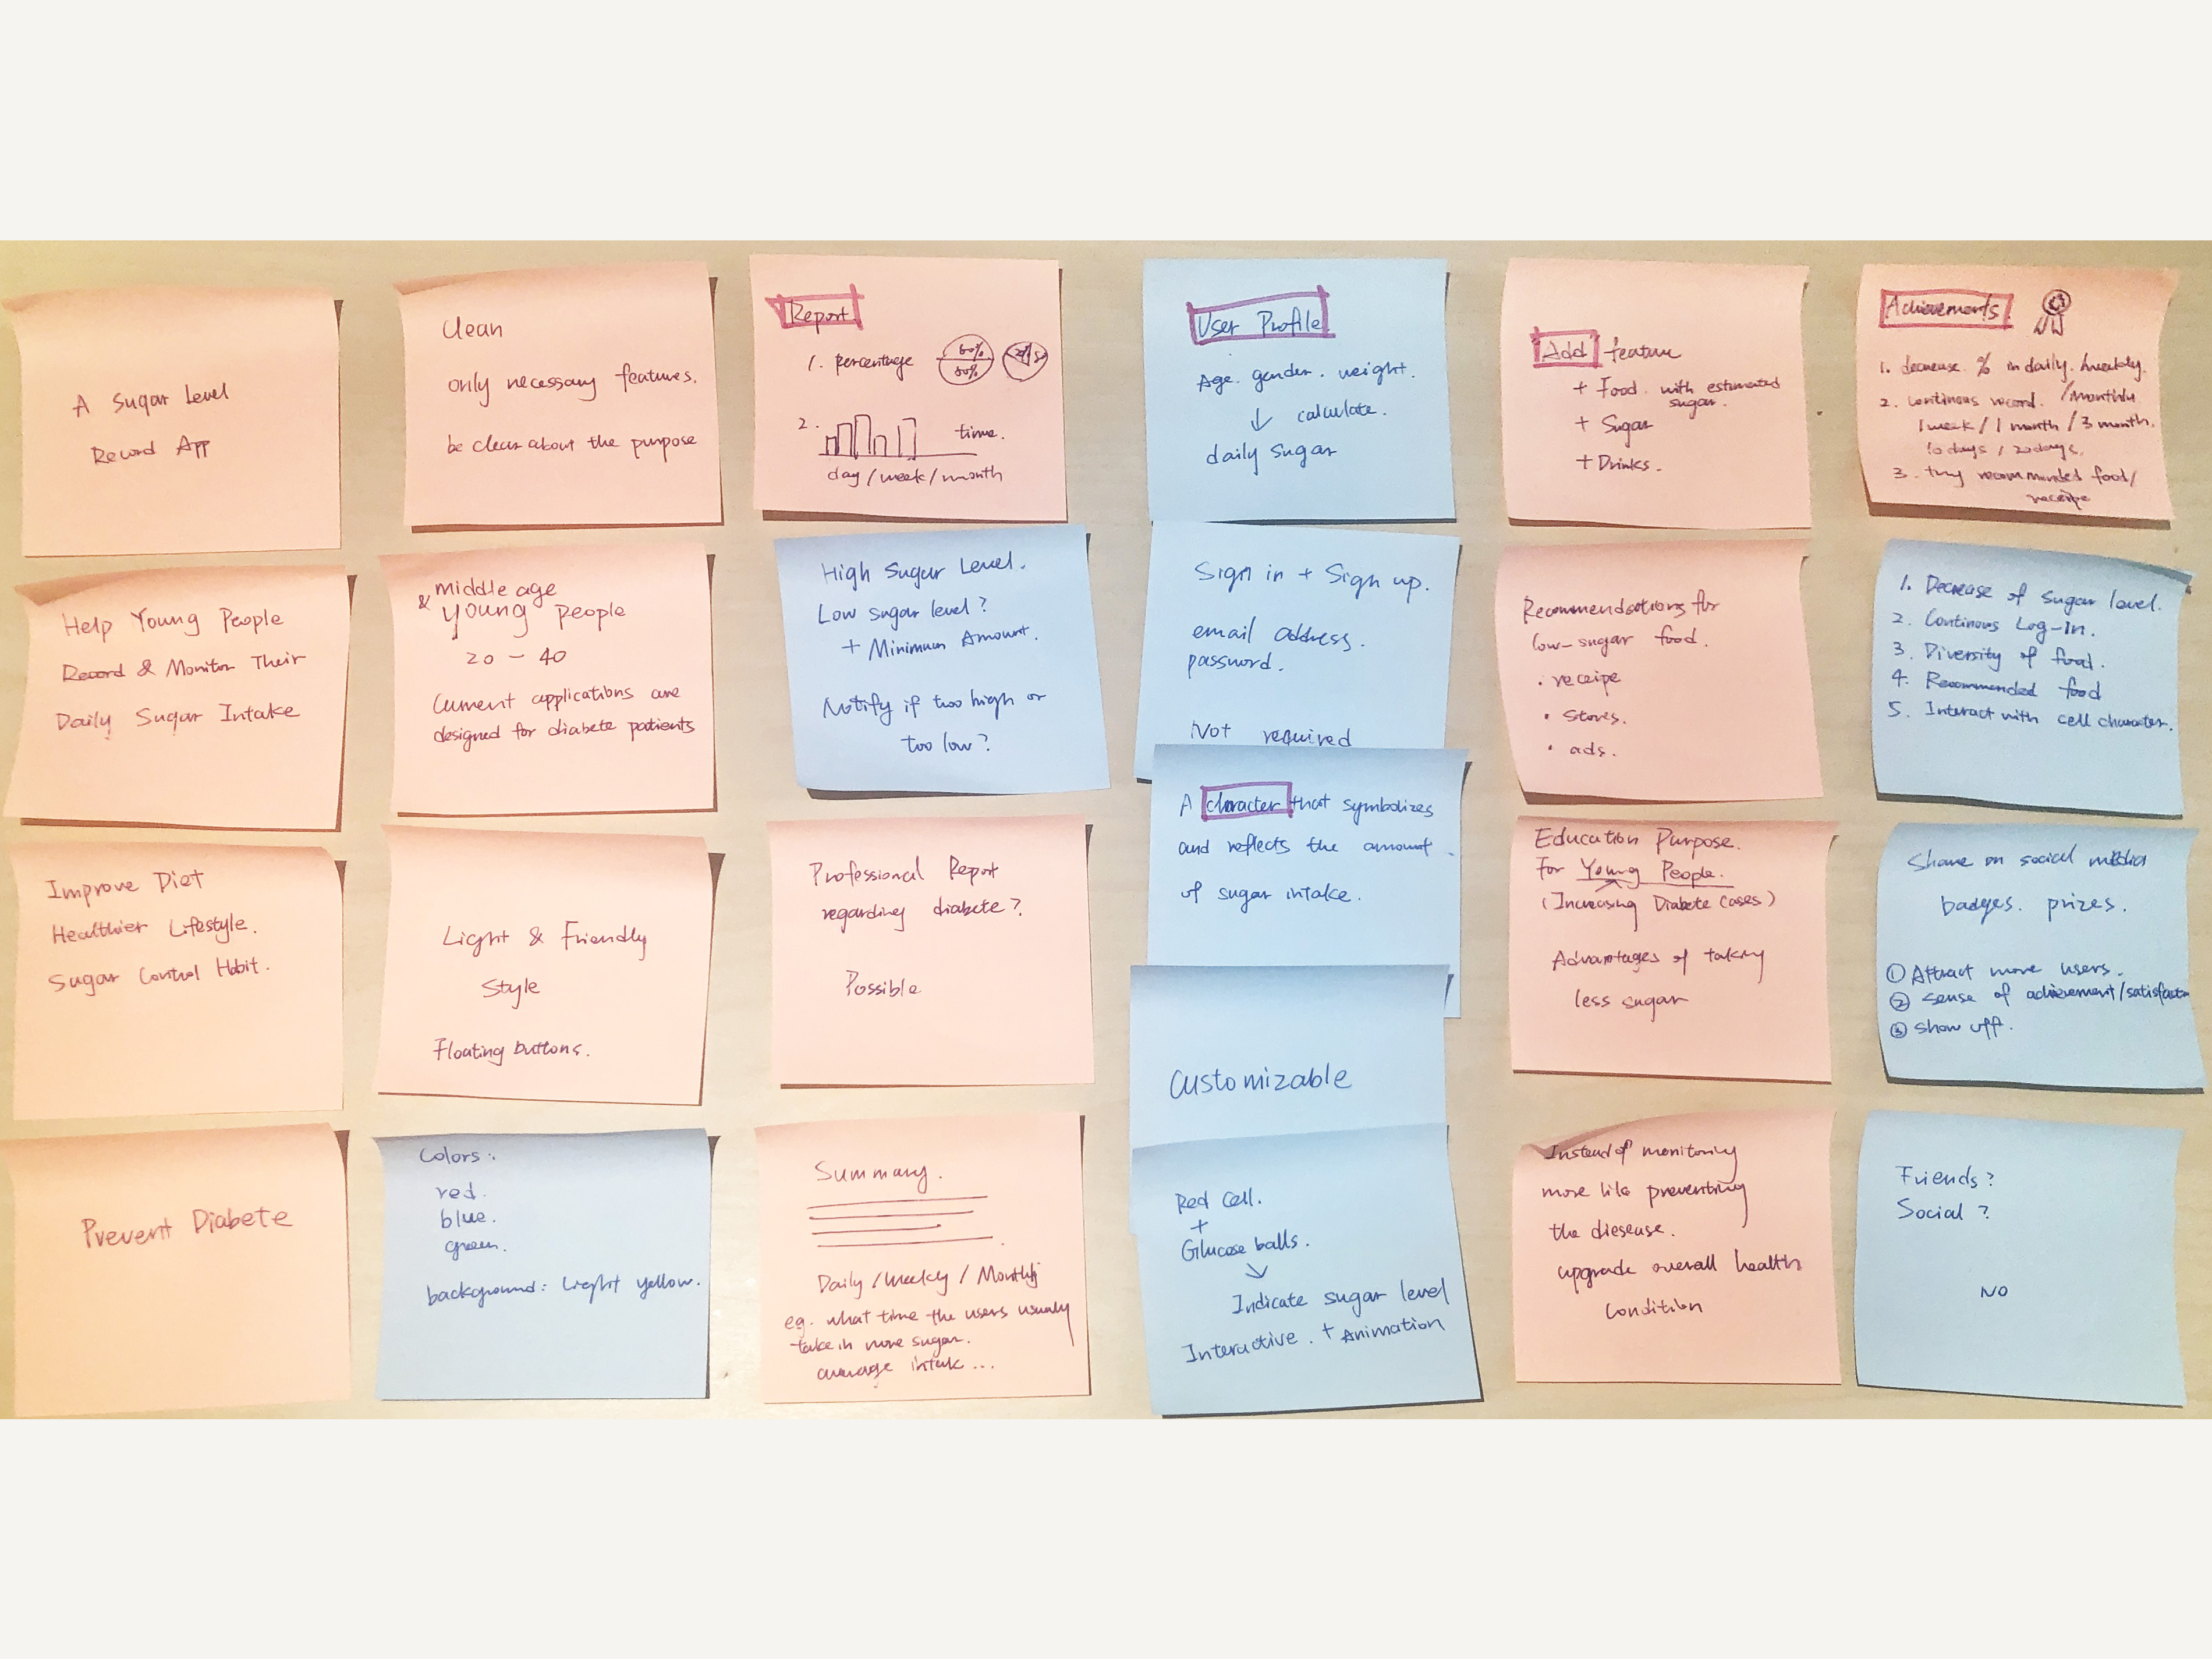 A Sugar Level
Record App
Help Young People
Record & Monitor Their
Daily Sugar Intake
Improve Diet
Healthier Lifestyle.
Sugar Control Habit.
Prevent Diabete
Clean
only necessary features.
be clear about the purpose
middle age
& young people
20 - 40
Current applications are
designed for diabete patients
Light & Friendly
Style
Floating buttons.
Colors:
red.
blue.
green.
background: Light yellow.
Report.
1. percentage
50%
2.
time.
day/week/month
High Sugar Level.
Low sugar level?
+ Minimum Amount.
Notify if too high or
too low?
Professional Report
regarding diabete?
Possible
Summary.
Daily/Weekly/Monthly
eg. what time the users usually
take in more sugar.
average intak...
User Profile
Age. gender. weight.
↓ calculate.
daily sugar
Sign in + Sign up.
email address.
password.
Not required
A character that symbolizes
and reflects the amount
of sugar intake.
Customizable
Red Cell.
+
Glucose balls.
↓
Indicate sugar level
Interactive. + Animation
Add feature
+ Food. with estimated
sugar.
+ Sugar
+ Drinks.
Recommendations for
low-sugar food.
· receipe
· stores.
· ads.
Education Purpose.
For Young People.
(Increasing Diabete Cases)
Advantages of taking
less sugar
Instead of monitoring
more like preventing
the diesease.
upgrade overall health
condition
Achievements
1. decrease % in daily/weekly.
/monthly.
2. continous record.
1 week/1 month/3 month.
10 days/20 days.
3. try recommended food/
receipe
1. Decrease of sugar level.
2. Continous Log-In.
3. Diversity of food.
4. Recommended food
5. Interact with cell character.
Share on social media
badges. prizes.
① Attract more users.
② sense of achievement/satisfact
③ show off.
Friends?
Social?
NO